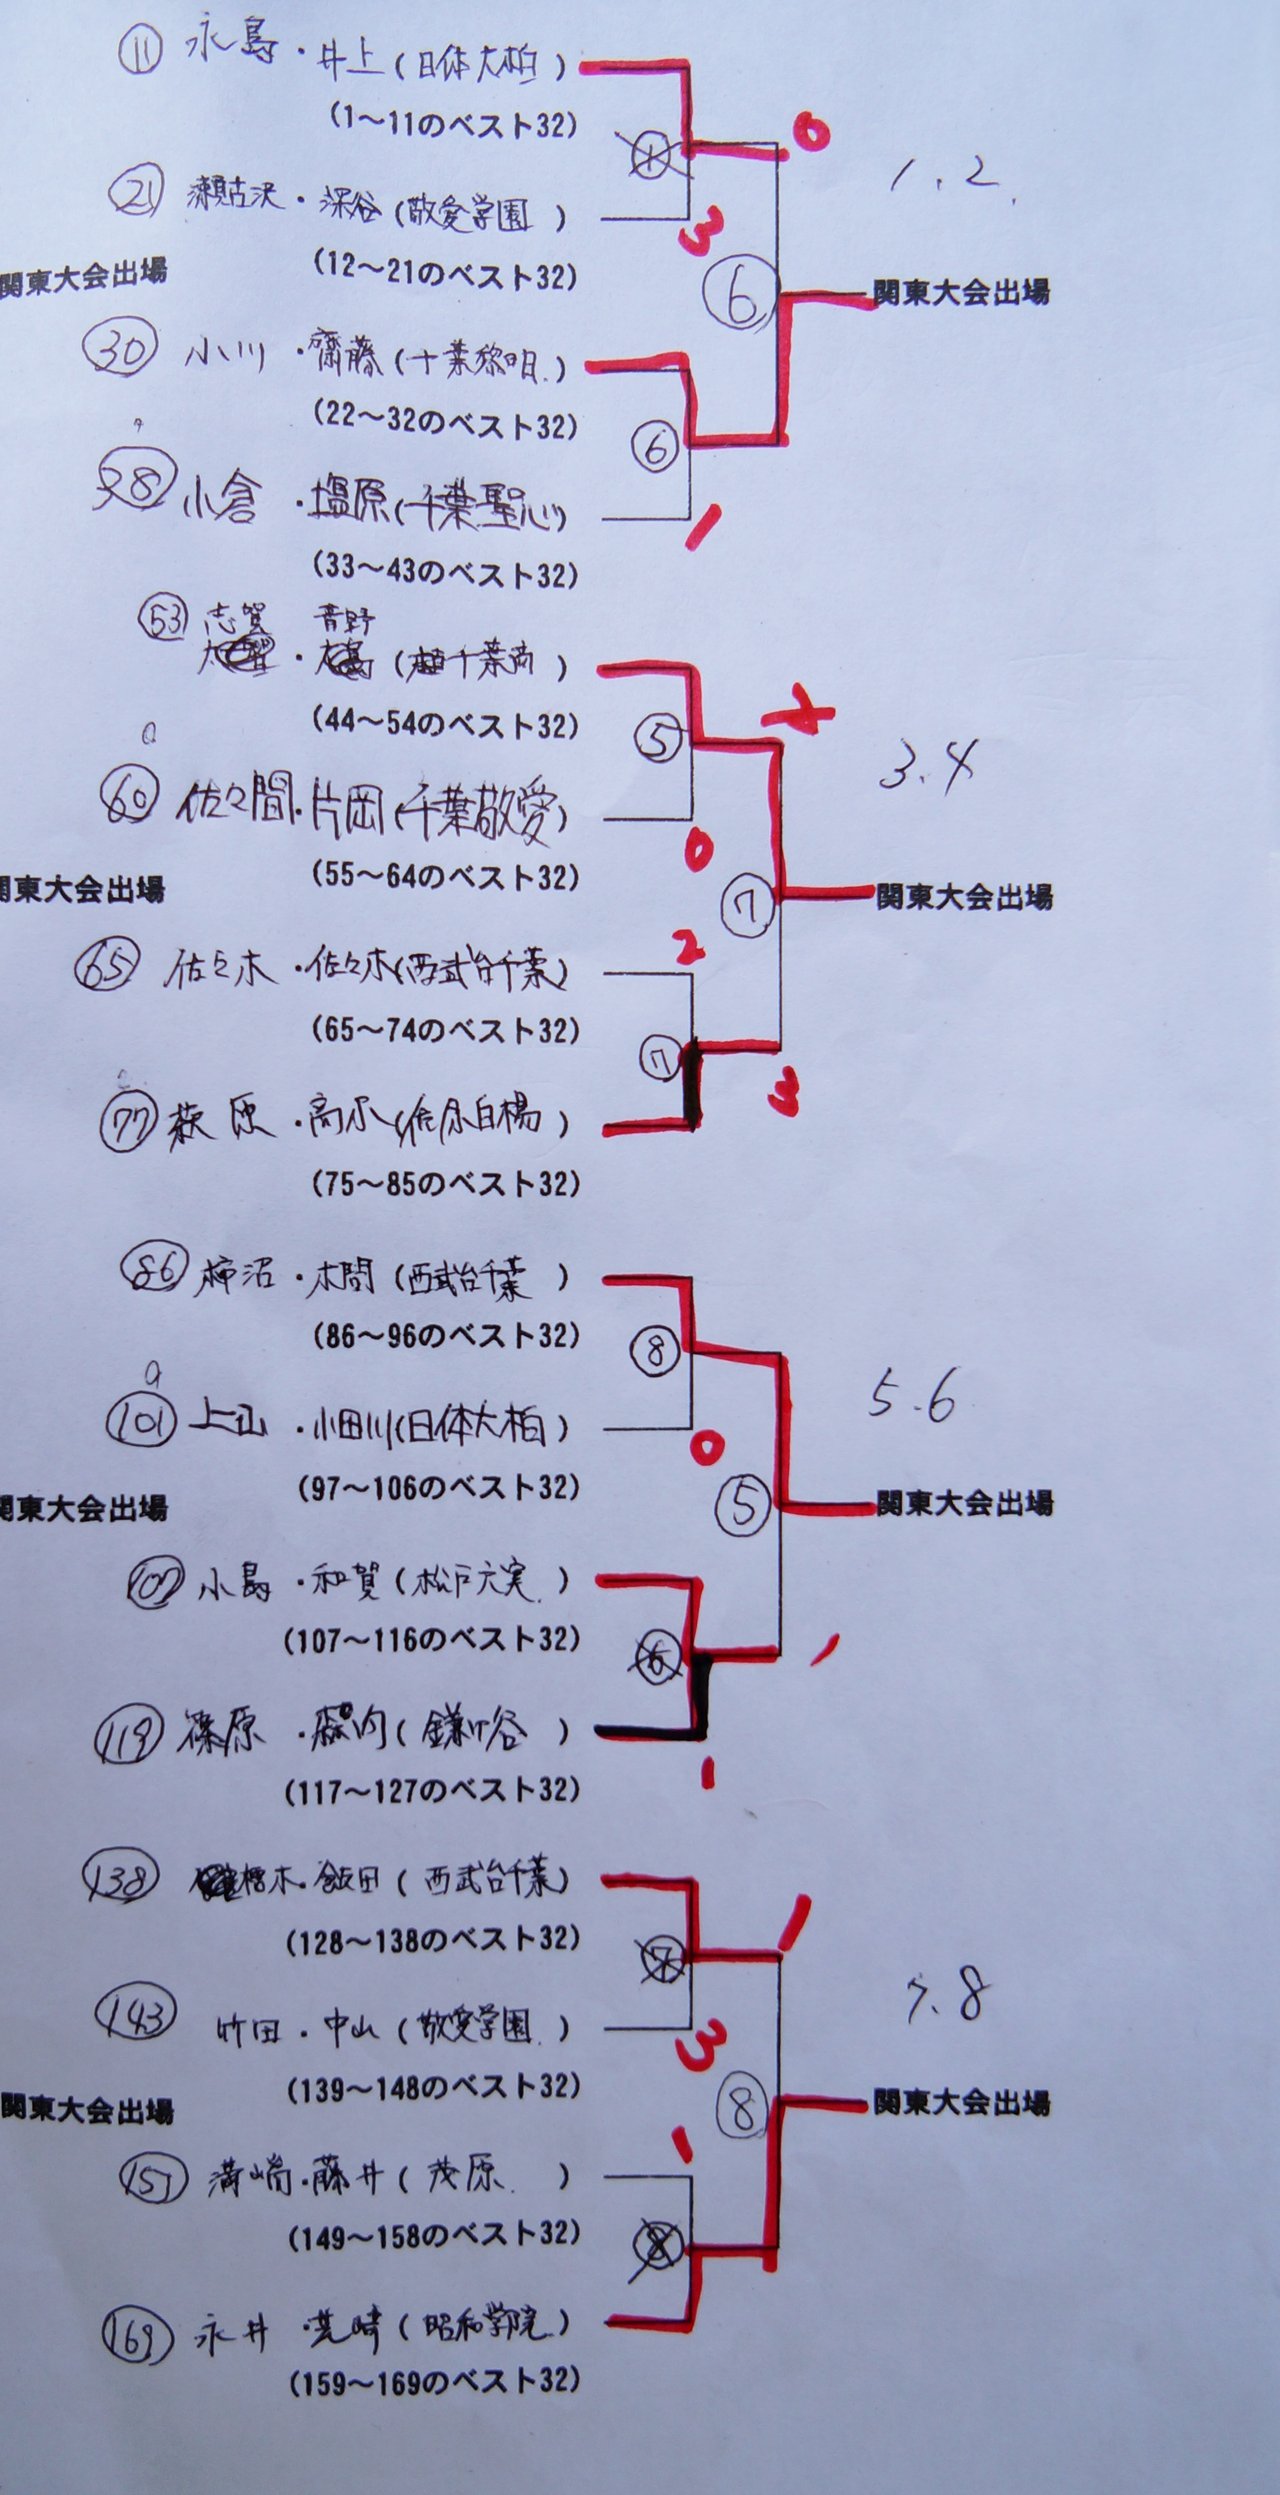 ⑪ 永島・井上(日体大柏)
(1～11のベスト32)
①
0
1.2
㉑ 瀬古沢・深谷(敬愛学園)
3
(12～21のベスト32)
関東大会出場
⑥
関東大会出場
㉚ 小川・齋藤(千葉黎明)
(22～32のベスト32)
⑥
㊳ 小倉・塩原(千葉聖心)
1
(33～43のベスト32)
53 志賀 青野
・(千葉商)
(44～54のベスト32)
⑤
3.4
60 佐々間・片岡(千葉敬愛)
0
(55～64のベスト32)
関東大会出場
⑦
関東大会出場
2
65 佐々木・佐々木(西武台千葉)
(65～74のベスト32)
⑦
3
77 萩原・高木(佐原白楊)
(75～85のベスト32)
86 柿沼・本間(西武台千葉)
(86～96のベスト32)
⑧
5.6
101 上山・小田川(日体大柏)
0
(97～106のベスト32)
関東大会出場
⑤
関東大会出場
107 小島・和賀(松戸六実)
(107～116のベスト32)
⑥
1
119 篠原・内(鎌ヶ谷)
1
(117～127のベスト32)
138 橋本・飯田(西武台千葉)
1
(128～138のベスト32)
⑦
7.8
143 竹田・中山(敬愛学園)
3
(139～148のベスト32)
関東大会出場
⑧
関東大会出場
1
溝端・藤井(茂原)
(149～158のベスト32)
⑧
169 永井・(昭和学院)
(159～169のベスト32)